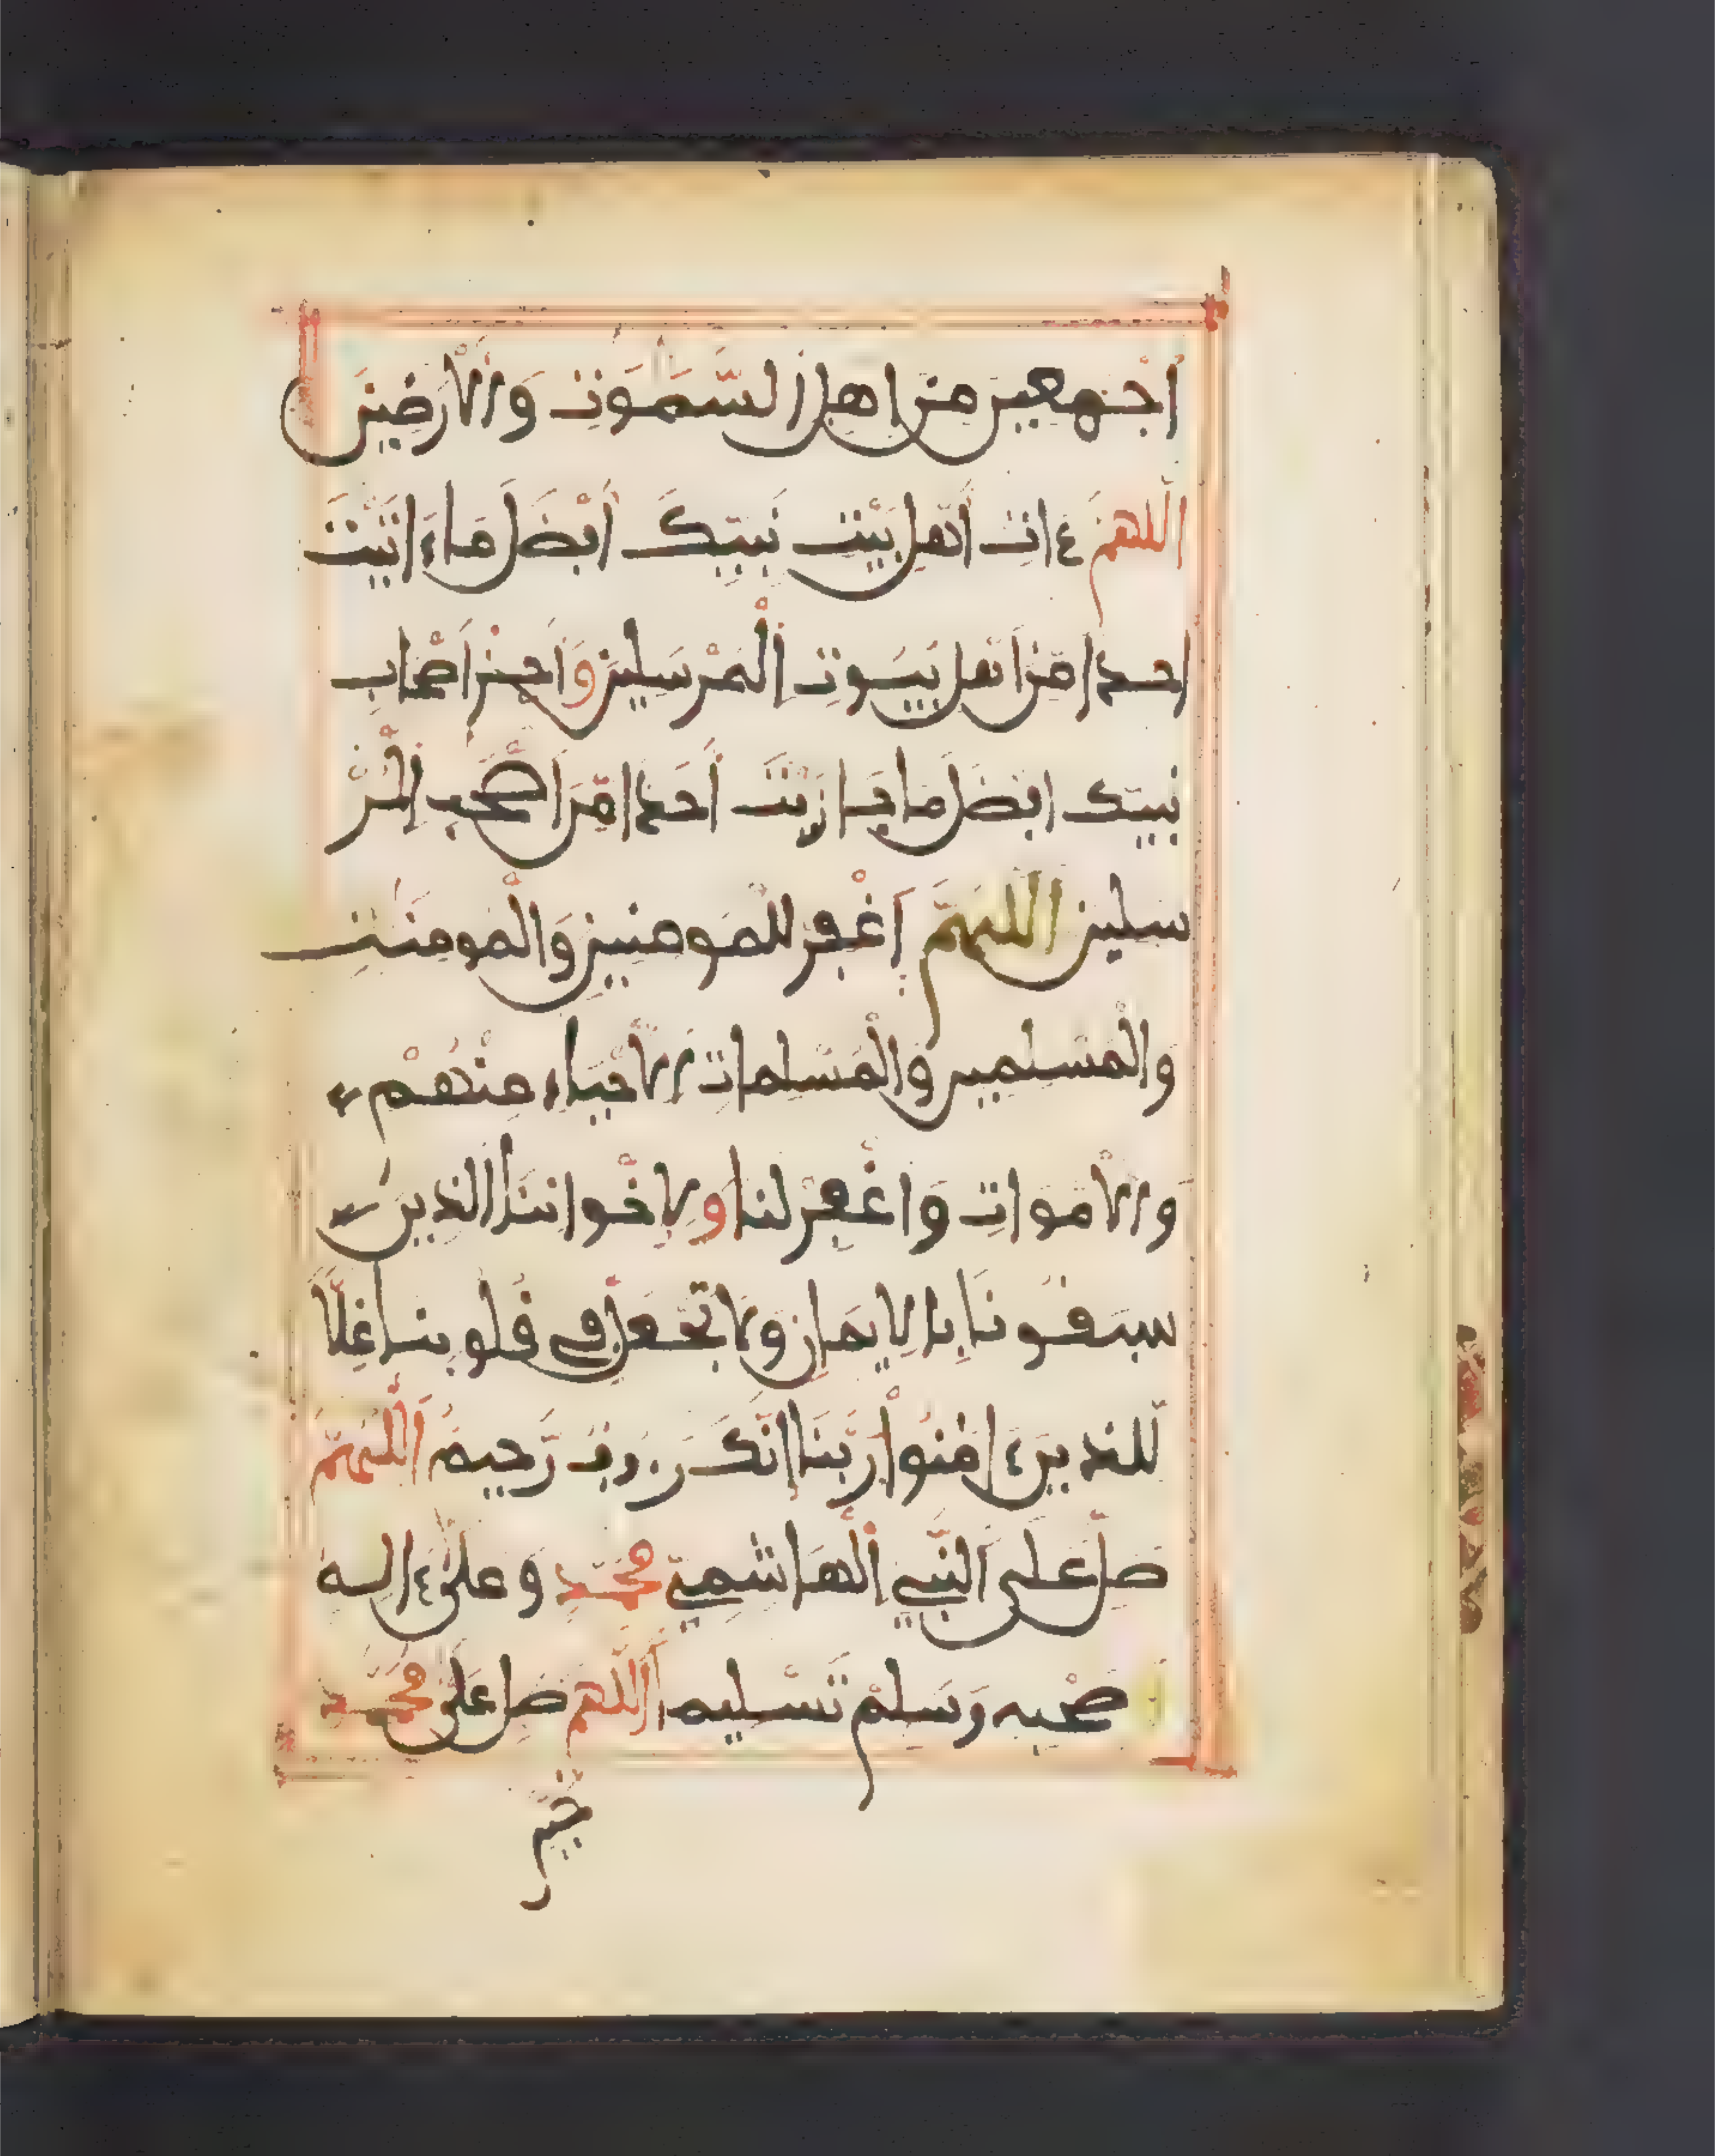 أجمعين من اهل السموت والارضين
اللهم ءات أهل بيت نبيك أفضل ما ءاتيت
احدا من اهل بيوت المرسلين واجز اصحاب
نبيك افضل ما جازيت أحدا من اصحب المر
سلين اللهم اغفر للمومنين والمومنت
والمسلمين والمسلمات الاحياء منهم
والاموات واغفر لنا ولإخواننا الذين
سبقونا بالايمان ولا تجعل في قلوبنا غلا
للذين ءامنوا ربنا إنك رءوف رحيم اللهم
صل على النبي الهاشمي محمد وعلى ءاله
وصحبه وسلم تسليما اللهم صل على محمد
خير